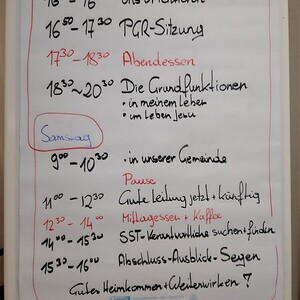 16⁵⁰ – 17³⁰ PGR-Sitzung
17³⁰ – 18³⁰ Abendessen
18³⁰ ~ 20³⁰ Die Grundfunktionen
• in meinem Leben
• im Leben Jesu
Samstag
9⁰⁰ – 10³⁰ • in unserer Gemeinde
Pause
11⁰⁰ – 12³⁰ Gute Leitung jetzt + künftig
12³⁰ – 14⁰⁰ Mittagessen + Kaffee
14⁰⁰ – 15³⁰ SST-Verantwortliche suchen + finden
15³⁰ – 16⁰⁰ Abschluss-Ausblick-Segen
Gutes Heimkommen + Weiterwirken!